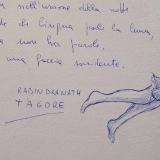 nell'unione della notte
di lingua parli la luna,
non ha parole,
una faccia sorridente.
RABINDRANATH
TAGORE